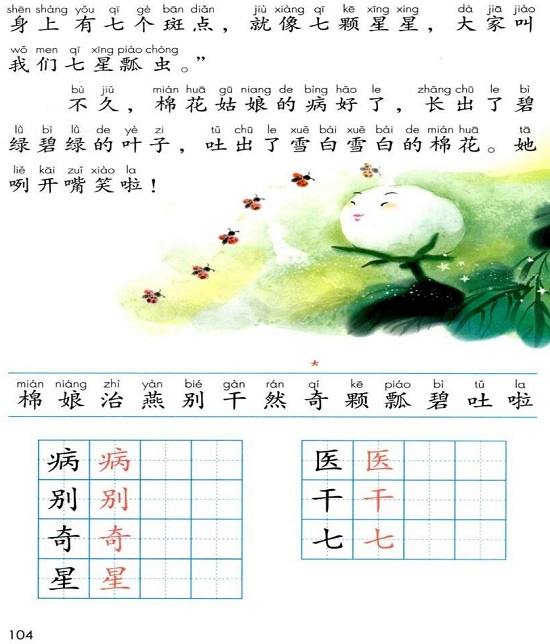 shēn shàng yǒu qī gè bān diǎn jiù xiàng qī kē xīng xing dà jiā jiào
身上有七个斑点，就像七颗星星，大家叫
wǒ men qī xīng piáo chóng
我们七星瓢虫。”
bù jiǔ mián huā gū niang de bìng hǎo le zhǎng chū le bì
不久，棉花姑娘的病好了，长出了碧
lǜ bì lǜ de yè zi tǔ chū le xuě bái xuě bái de mián huā tā
绿碧绿的叶子，吐出了雪白雪白的棉花。她
liě kāi zuǐ xiào la
咧开嘴笑啦！
*
mián niáng zhì yàn bié gàn rán qí kē piáo bì tǔ la
棉娘治燕别干然奇颗瓢碧吐啦
病 病
别 别
奇 奇
星 星
医 医
干 干
七 七
104